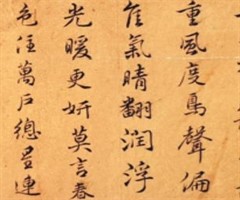 重風度鳥聲偏
佳氣晴翻潤浮
光暖更妍莫言春
色萬戶總呈連